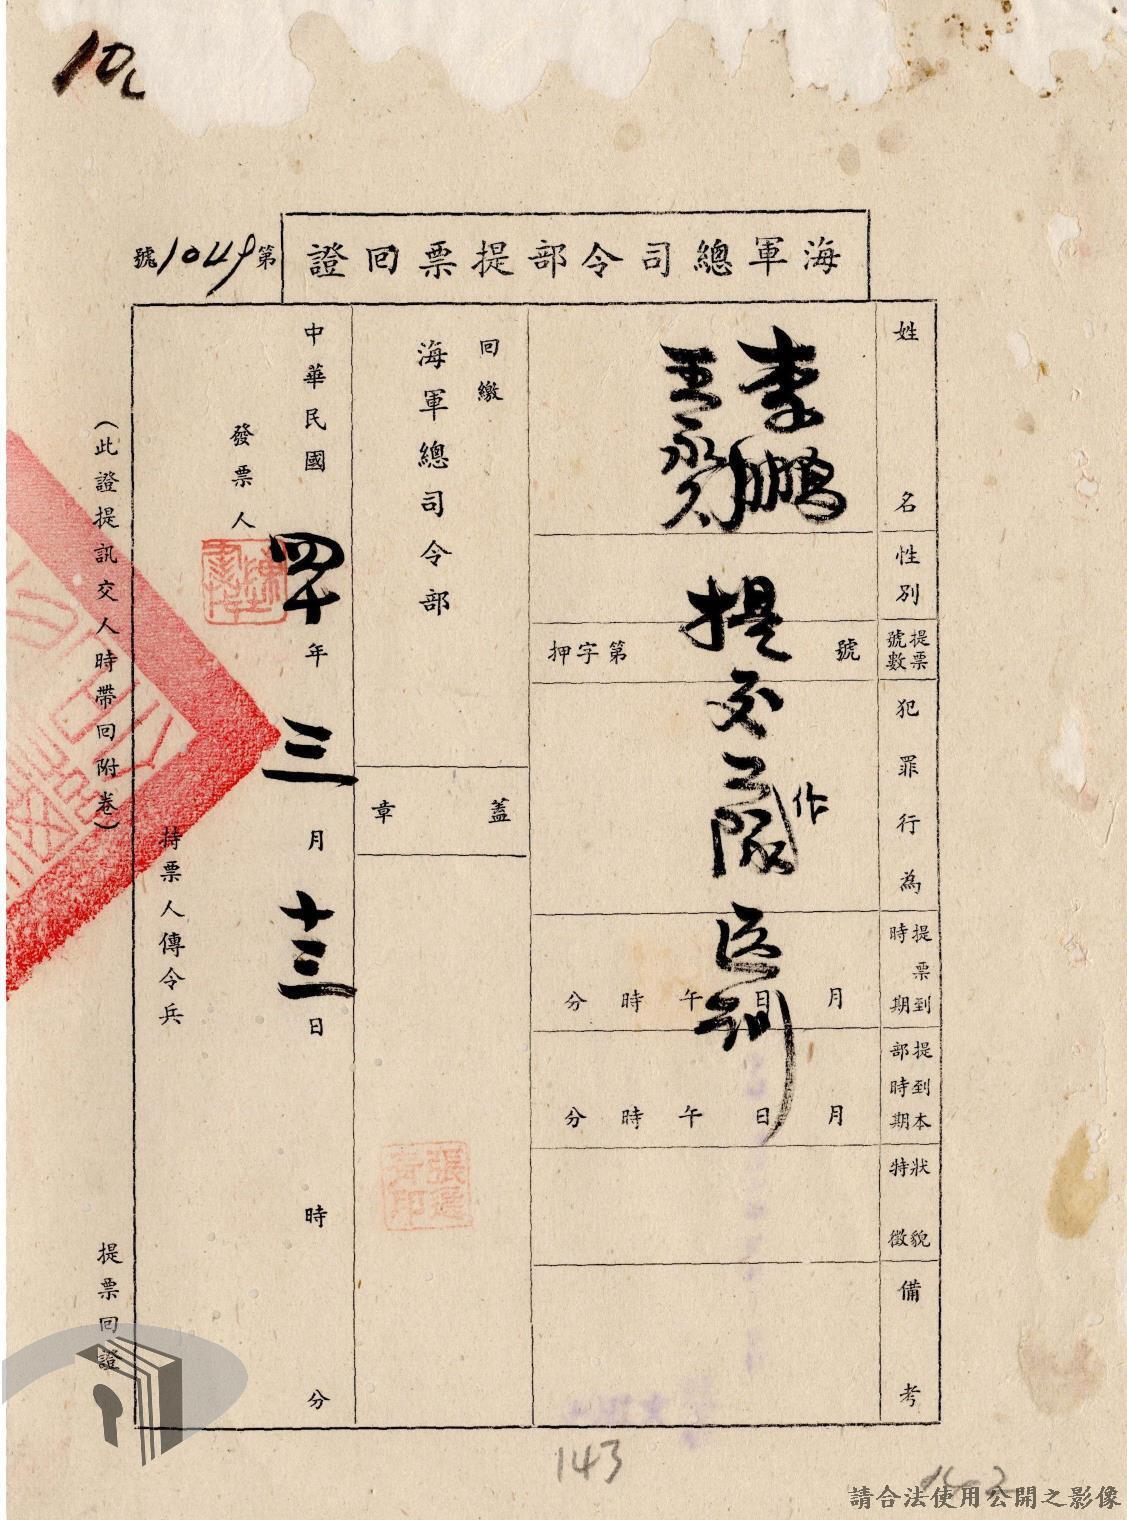 10
海軍總司令部提票回證
第1049號
姓名
性別
提票號數
犯罪行為
提票到時期
提到本部時期
狀貌特徵
備考
李鵬
提交工作隊
訓
號
第
字押
月日午時分
月日午時分
回繳
海軍總司令部
蓋章
中華民國四十年三月十三日時分
發票人
持票人傳令兵
(此證提訊交人時帶回附卷)
提票回證
143
請合法使用公開之影像